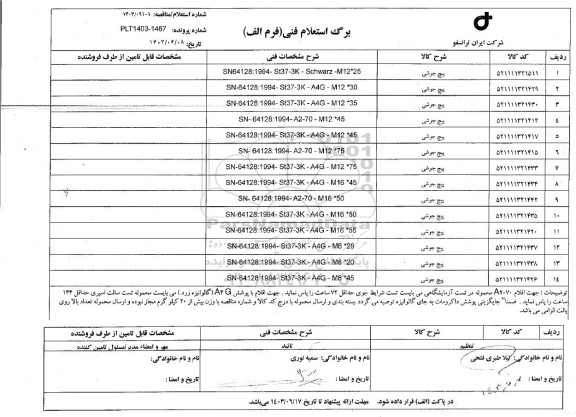 شماره استعلام/مناقصه: ۱۴۰۳/۰۹۱-۱
برگ استعلام فنی(فرم الف)
شماره پرونده: PLT1403-1467
شرکت ایران ترانسفو
تاریخ: ۱۴۰۳/۰۶/۰۸
ردیف کد کالا شرح کالا شرح مشخصات فنی مشخصات قابل تامین از طرف فروشنده
۱ ۵۲۱۱۱۱۳۲۱۵۱۱ پیچ جوشی SN64128:1994- St37-3K - Schwarz -M12*25
۲ ۵۲۱۱۱۱۳۲۱۴۲۹ پیچ جوشی SN-64128:1994- St37-3K - A4G - M12 *30
۳ ۵۲۱۱۱۱۳۲۱۴۳۰ پیچ جوشی SN-64128:1994- St37-3K - A4G - M12 *35
۴ پیچ جوشی SN- 64128:1994- A2-70 - M12 *45
۵ ۵۲۱۱۱۱۳۲۱۴۱۷ پیچ جوشی SN-64128:1994- St37-3K - A4G - M12 *45
۶ ۵۲۱۱۱۱۳۲۱۴۱۵ پیچ جوشی SN- 64128:1994- A2-70 - M12 *75
۷ پیچ جوشی SN-64128:1994- St37-3K - A4G - M12 *75
۸ پیچ جوشی SN-64128:1994- St37-3K - A4G - M16 *45
۹ پیچ جوشی SN- 64128:1994- A2-70 - M16 *50
۱۰ ۵۲۱۱۱۱۳۲۱۴۳۵ پیچ جوشی SN-64128:1994- St37-3K - A4G - M16 *50
۱۱ ۵۲۱۱۱۱۳۲۱۴۲۰ پیچ جوشی SN-64128:1994- St37-3K - A4G - M16 *55
۱۲ ۵۲۱۱۱۱۳۲۱۴۳۷ پیچ جوشی SN-64128:1994- St37-3K - A4G - M6 *28
۱۳ ۵۲۱۱۱۱۳۲۱۴۳۸ پیچ جوشی SN-64128:1994- St37-3K - A4G - M8 *20
۱۴ ۵۲۱۱۱۱۳۲۱۴۲۶ پیچ جوشی SN-64128:1994- St37-3K - A4G - M8 *45
توضیحات : جهت اقلام A2-70 محموله در تست آزمایشگاهی می بایست تست شرایط جوی حداقل ۷۲ ساعت را پاس نماید . جهت اقلام با پوشش A4G (گالوانیزه زرد ) می بایست محموله تست سالت اسپری حداقل ۱۴۴
ساعت را پاس نماید . ضمنا" جایگزینی پوشش داکرومات به جای گالوانیزه توصیه می گردد .بسته بندی و ارسال محموله با درج کد کالا و شماره مناقصه با وزن بیش از ۲۰ کیلو گرم مجاز نبوده و ارسال محموله تعداد بالا روی
پالت الزامی می باشد.
ردیف کد کالا شرح کالا شرح مشخصات فنی مشخصات قابل تامین از طرف فروشنده
تنظیم تائید مهر و امضاء مدیر/مسئول تامین کننده
نام و نام خانوادگی: لیلا طیری فتحی نام و نام خانوادگی: سمیه نوری نام و نام خانوادگی:
تاریخ و امضا : تاریخ و امضا : تاریخ و امضا :
در پاکت (الف) قرار داده شود. مهلت ارائه پیشنهاد تا تاریخ ۱۴۰۳/۰۶/۱۷ می‌باشد.